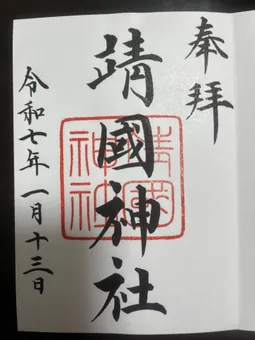 奉拝
靖國神社
靖國神社
令和七年一月十三日